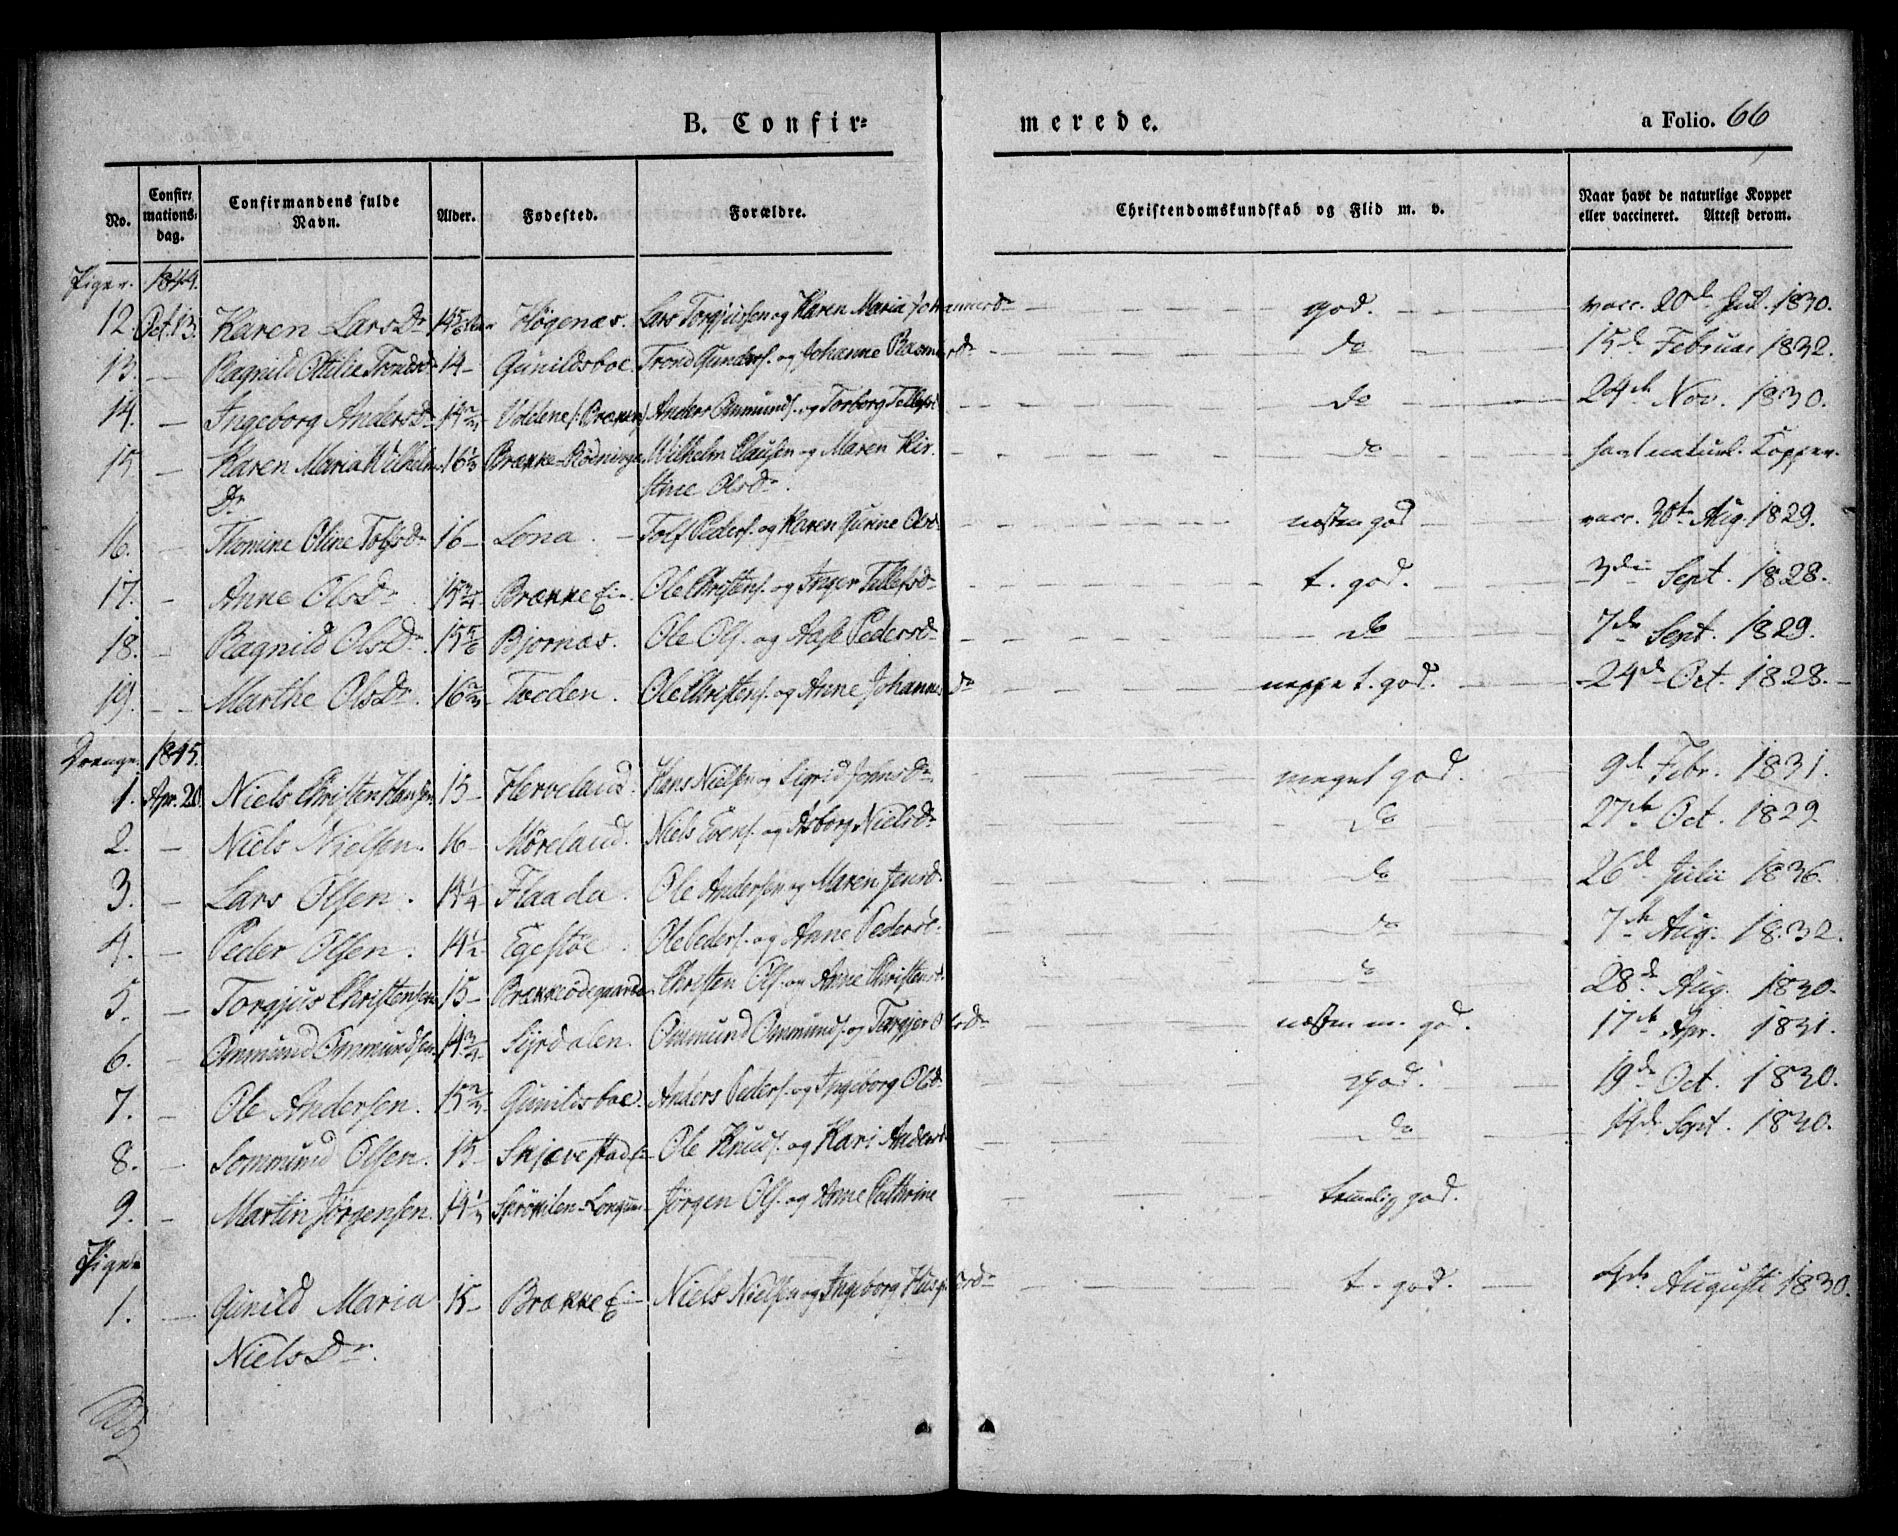 B. Confir=
merede.
a Folio. 66
No.
Confir= mations= dag.
Confirmandens fulde Navn.
Alder.
Fødested.
Forældre.
Christendomskundskab og Flid m. v.
Naar havt de naturlige Kopper eller vaccineret. Attest derom.
Piger. 1844.
12 Oct. 13. Karen LarsDr 14 5/6 Høgenæs. Lars Torgjussen og Karen Maria Johannesdr god. vacc. 20de Jul. 1830.
13. — Ragnild Ottilie Trondsdr 14 — Gunildsboe. Trond Gunders. og Johanne Rasmusdr do 15de Februar 1832.
14. — Ingeborg AndersDr 14 2/3 Anders Ommunds. og Torborg Tellefsd do 24de Nov. 1830.
15 — Karen Maria Wilhelms Dr 16 1/3 Brække Wilhelm Clausen og Maren Kir= stine OlsDr. do havt naturl. Kopper.
16. — Thomine Oline TolfsDr 16 — Lona. — Tolf Peders. og Karen Gurine Olsd næsten god vacc. 30te Aug. 1829.
17. — Anne OlsDr 15 3/4 Brække Ei— Ole Christens. og Inger Tellefsdr t. god. 3die Sept. 1828.
18. — Ragnild OlsDr. 15 5/6 Bjornæs. Ole Ols. og Aase Pedersdr do 7de Sept. 1829.
19. — Marthe OlsDr. 16 2/3 Treden. Ole Christens. og Anne Johannesdr neppe t. god. 24de Oct. 1828. —
Drenge. 1845.
1. Apr. 20. Niels Christen Hansen 15 — Herveland. Hans Nielsen og Sigrid Johnsdr meget god. 9de Febr. 1831.
2. — Niels Nielsen. 16 — Møreland. Niels Evens. og Asborg Nielsdr do 27de Oct. 1829
3. — Lars Olsen. 14 1/4 Flaada. Ole Andersen og Maren Jensd. do 26de Julii 1836.
4. — Peder Olsen. 14 1/2 Egestøe. Ole Peders. og Anne Pedersd. do 7de Aug. 1832.
5. — Torgjus Christensen 15 — Brækkeødegaarden Christen Ols. og Anne Christensd. do 28de Aug. 1830.
6. — Ommund Ommundsen. 14 3/4 Syrdalen. Ommund Ommunds. og Torgjer Olsdr næsten m. god. 17de Apr. 1831.
7. — Ole Andersen. 15 2/3 Gunildsboe. Anders Peders. og Ingeborg Olsd. god. 19de Oct. 1830.
8. — Sommund Olsen. 15 — Ole Knuds. og Kari Andersd. do Sept. 1830.
9. — Martin Jørgensen. 14 1/3 Jørgen Ols. og Anne Cathrine temelig god.
Piger
1. — Gunild Maria NielsDr. 15 — Brække Ei— Niels Nielsen og Ingeborg t. god. 4de Augusti 1830.